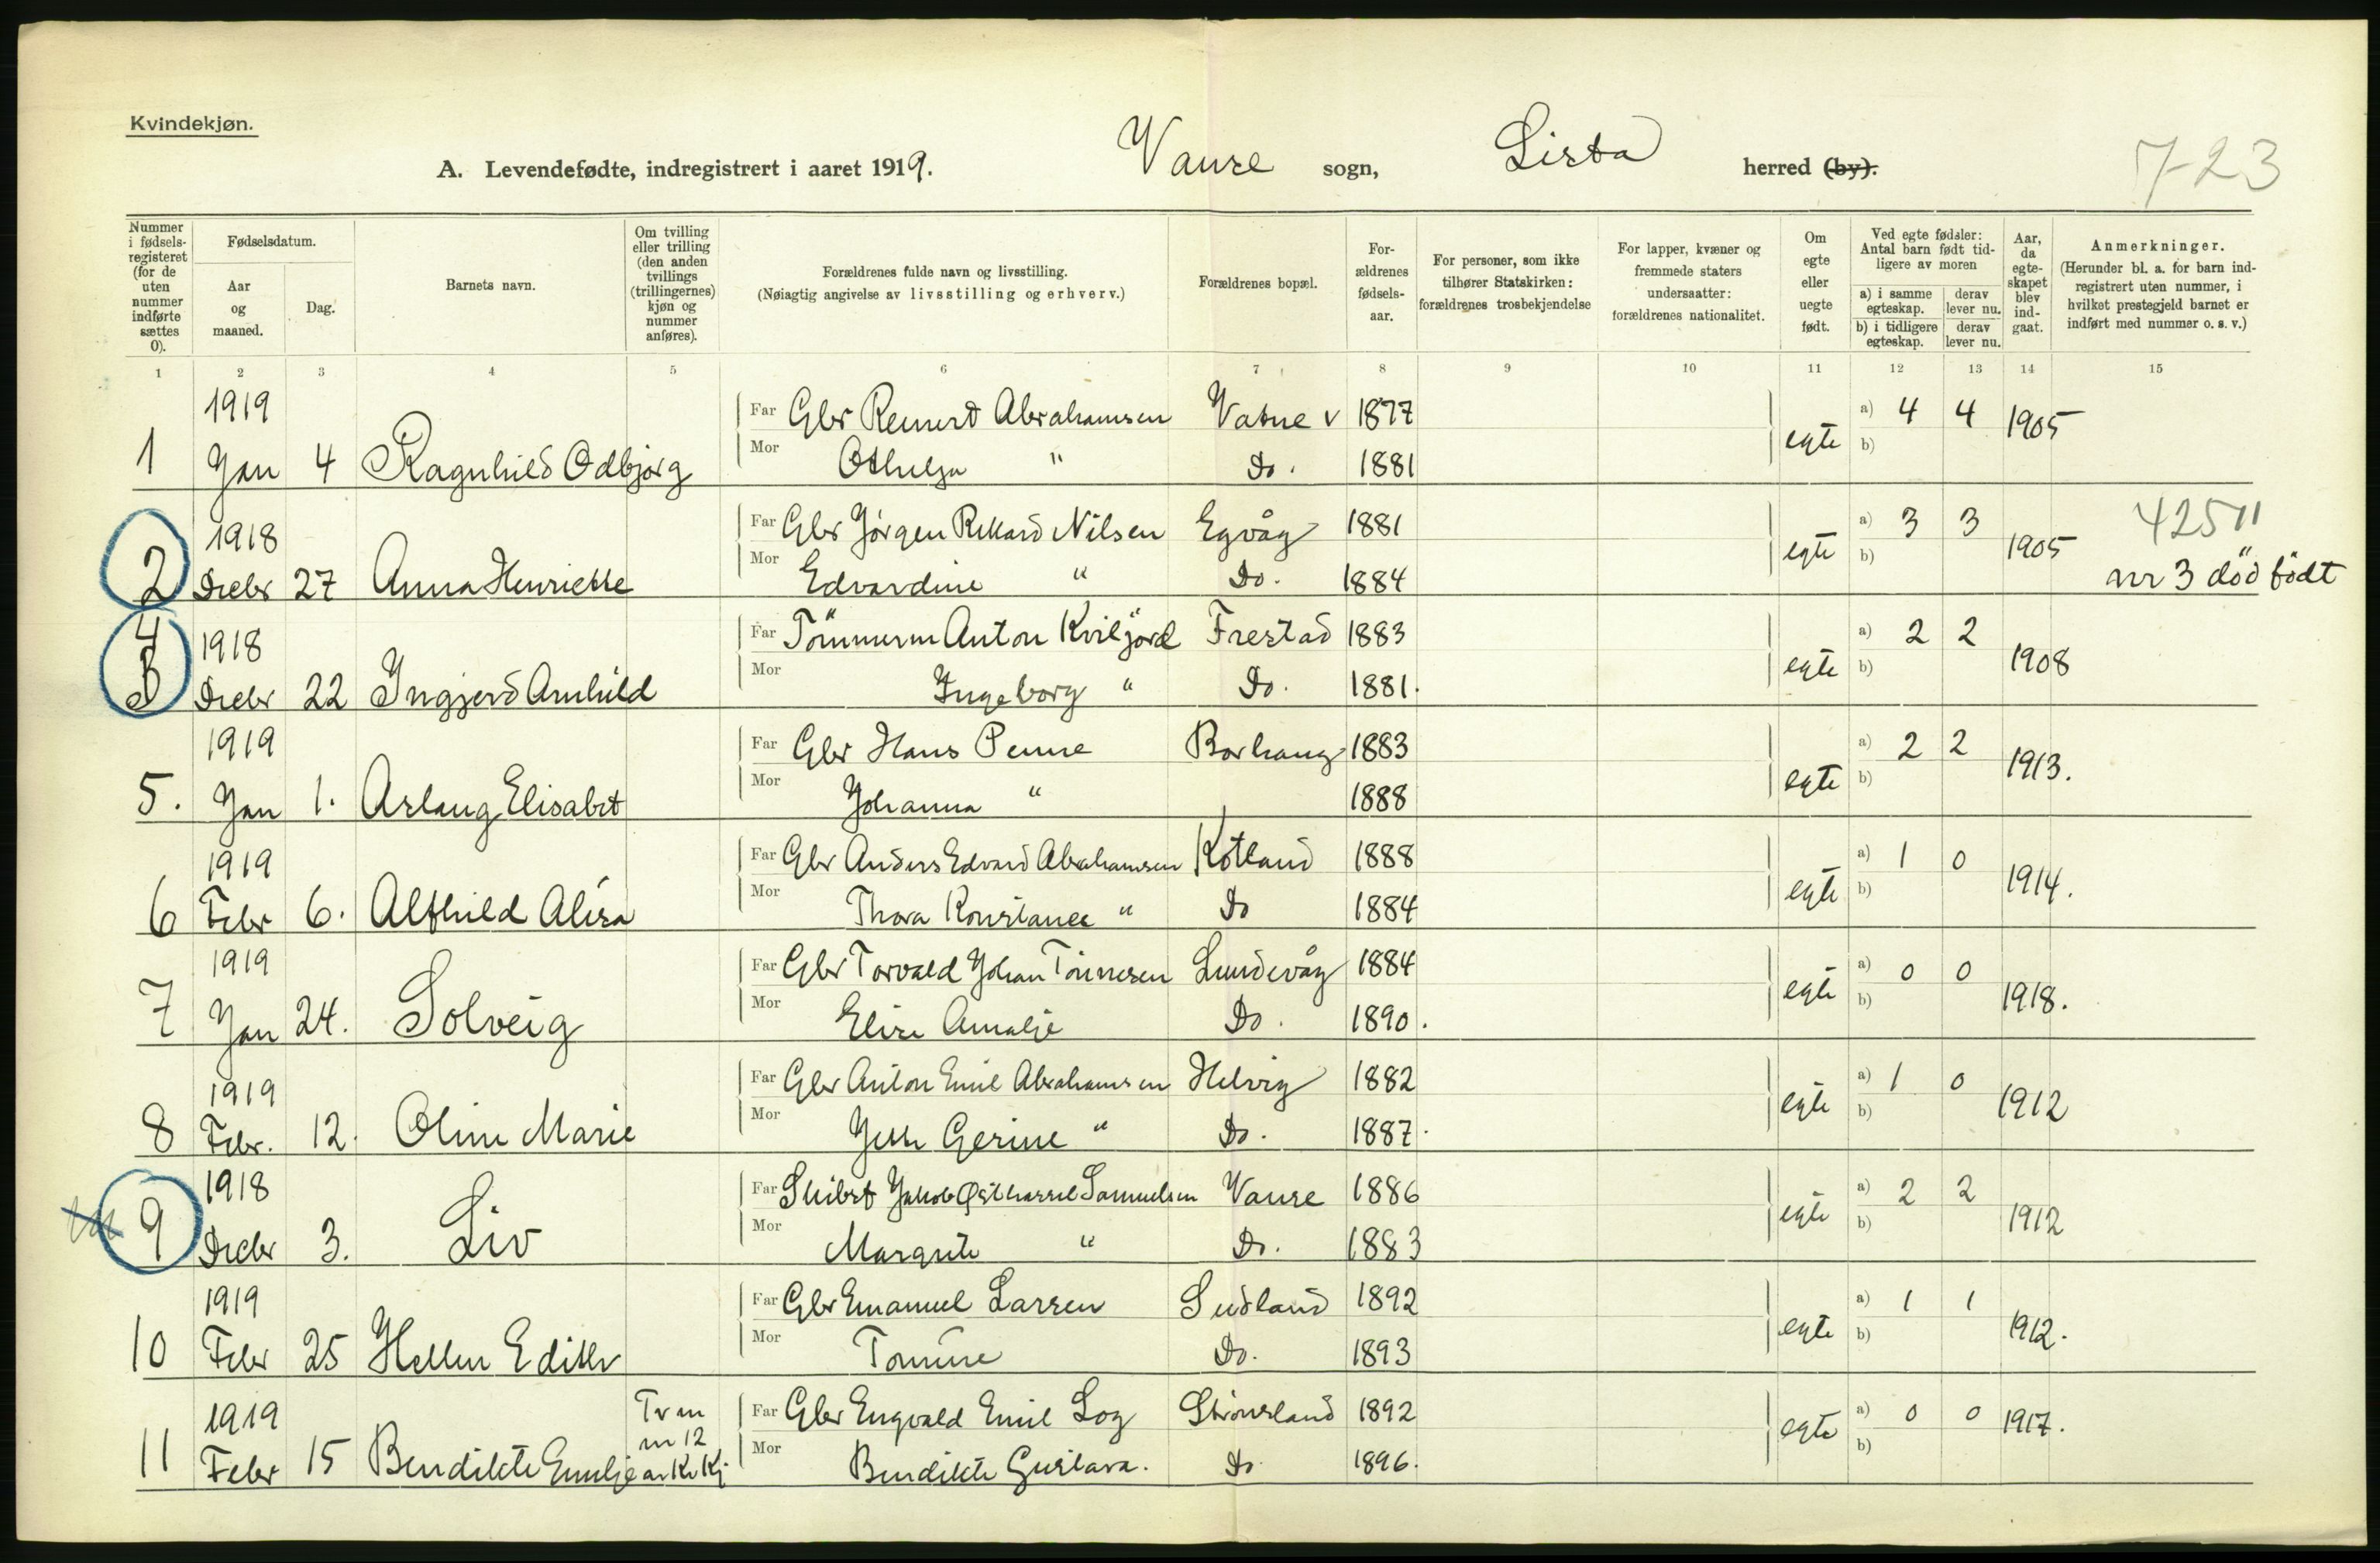 Kvindekjøn.
A. Levendefødte, indregistrert i aaret 1919. Vanse sogn, Lista herred (by). 723
Nummer i fødselsregisteret (for de uten nummer indførte sættes 0).
Fødselsdatum.
Aar og maaned.
Dag.
Barnets navn.
Om tvilling eller trilling (den anden tvillings (trillingernes) kjøn og nummer anføres).
Forældrenes fulde navn og livsstilling.
(Nøiagtig angivelse av livsstilling og erhverv.)
Forældrenes bopæl.
Forældrenes fødselsaar.
For personer, som ikke tilhører Statskirken: forældrenes trosbekjendelse
For lapper, kvæner og fremmede staters undersaatter: forældrenes nationalitet.
Om egte eller uegte født.
Ved egte fødsler: Antal barn født tidligere av moren
a) i samme egteskap. derav lever nu.
b) i tidligere egteskap. derav lever nu.
Aar, da egteskapet blev indgaat.
Anmerkninger.
(Herunder bl. a. for barn indregistrert uten nummer, i hvilket prestegjeld barnet er indført med nummer o. s. v.)
1 2 3 4 5 6 7 8 9 10 11 12 13 14 15
1919 Far Gbr Reinert Abrahamsen Vatne v 1877 a) 4 4 1905
1 Jan 4 Ragnhild Odbjørg Mor Othelga " Do. 1881 egte b)
1918 Far Gbr Jörgen Rikard Nilsen Egvåg 1881 a) 3 3 1905 42511
2 Decbr 27 Anna Henriette Mor Edvardine " Do. 1884 egte b) nr 3 död födt
4 1918 Far Tömmerm Anton Kviljord Frestad 1883 a) 2 2 1908
3 Decbr 22 Ingjerd Arnhild Mor Ingeborg " Do. 1881. egte b)
1919 Far Gbr Hans Penne Borhaug 1883 a) 2 2 1913.
5. Jan 1. Aslaug Elisabet Mor Johanna " 1888 egte b)
1919 Far Gbr Anders Edvard Abrahamsen Kotland 1888 a) 1 0 1914.
6 Febr 6. Alfhild Alisa Mor Thora Konstance " Do 1884 egte b)
1919 Far Gbr Torvald Johan Tönnesen Lundevåg 1884 a) 0 0 1918.
7 Jan 24. Solveig Mor Elise Amalje Do. 1890. egte b)
1919 Far Gbr Anton Emil Abrahamsen Helvig 1882 a) 1 0 1912
8 Febr. 12. Oline Marie Mor Gerine " Do. 1887. egte b)
1918 Far Jakob Samuelsen Vanse 1886 a) 2 2 1912
9 Decbr 3. Liv Mor Margrete " Do. 1883 egte b)
1919 Far Gbr Emanuel Larsen Sudland 1892 a) 1 1 1912.
10 Febr 25 Hellen Edith Mor Tomine Do. 1893 egte b)
1919 Tv m Far Gbr Engvald Emil Log 1892 a) 0 0 1917.
nr 12
11 Febr 15 Bendikte Emilje av Kv Kj Mor Bendikte Gustava. Do. 1896. egte b)